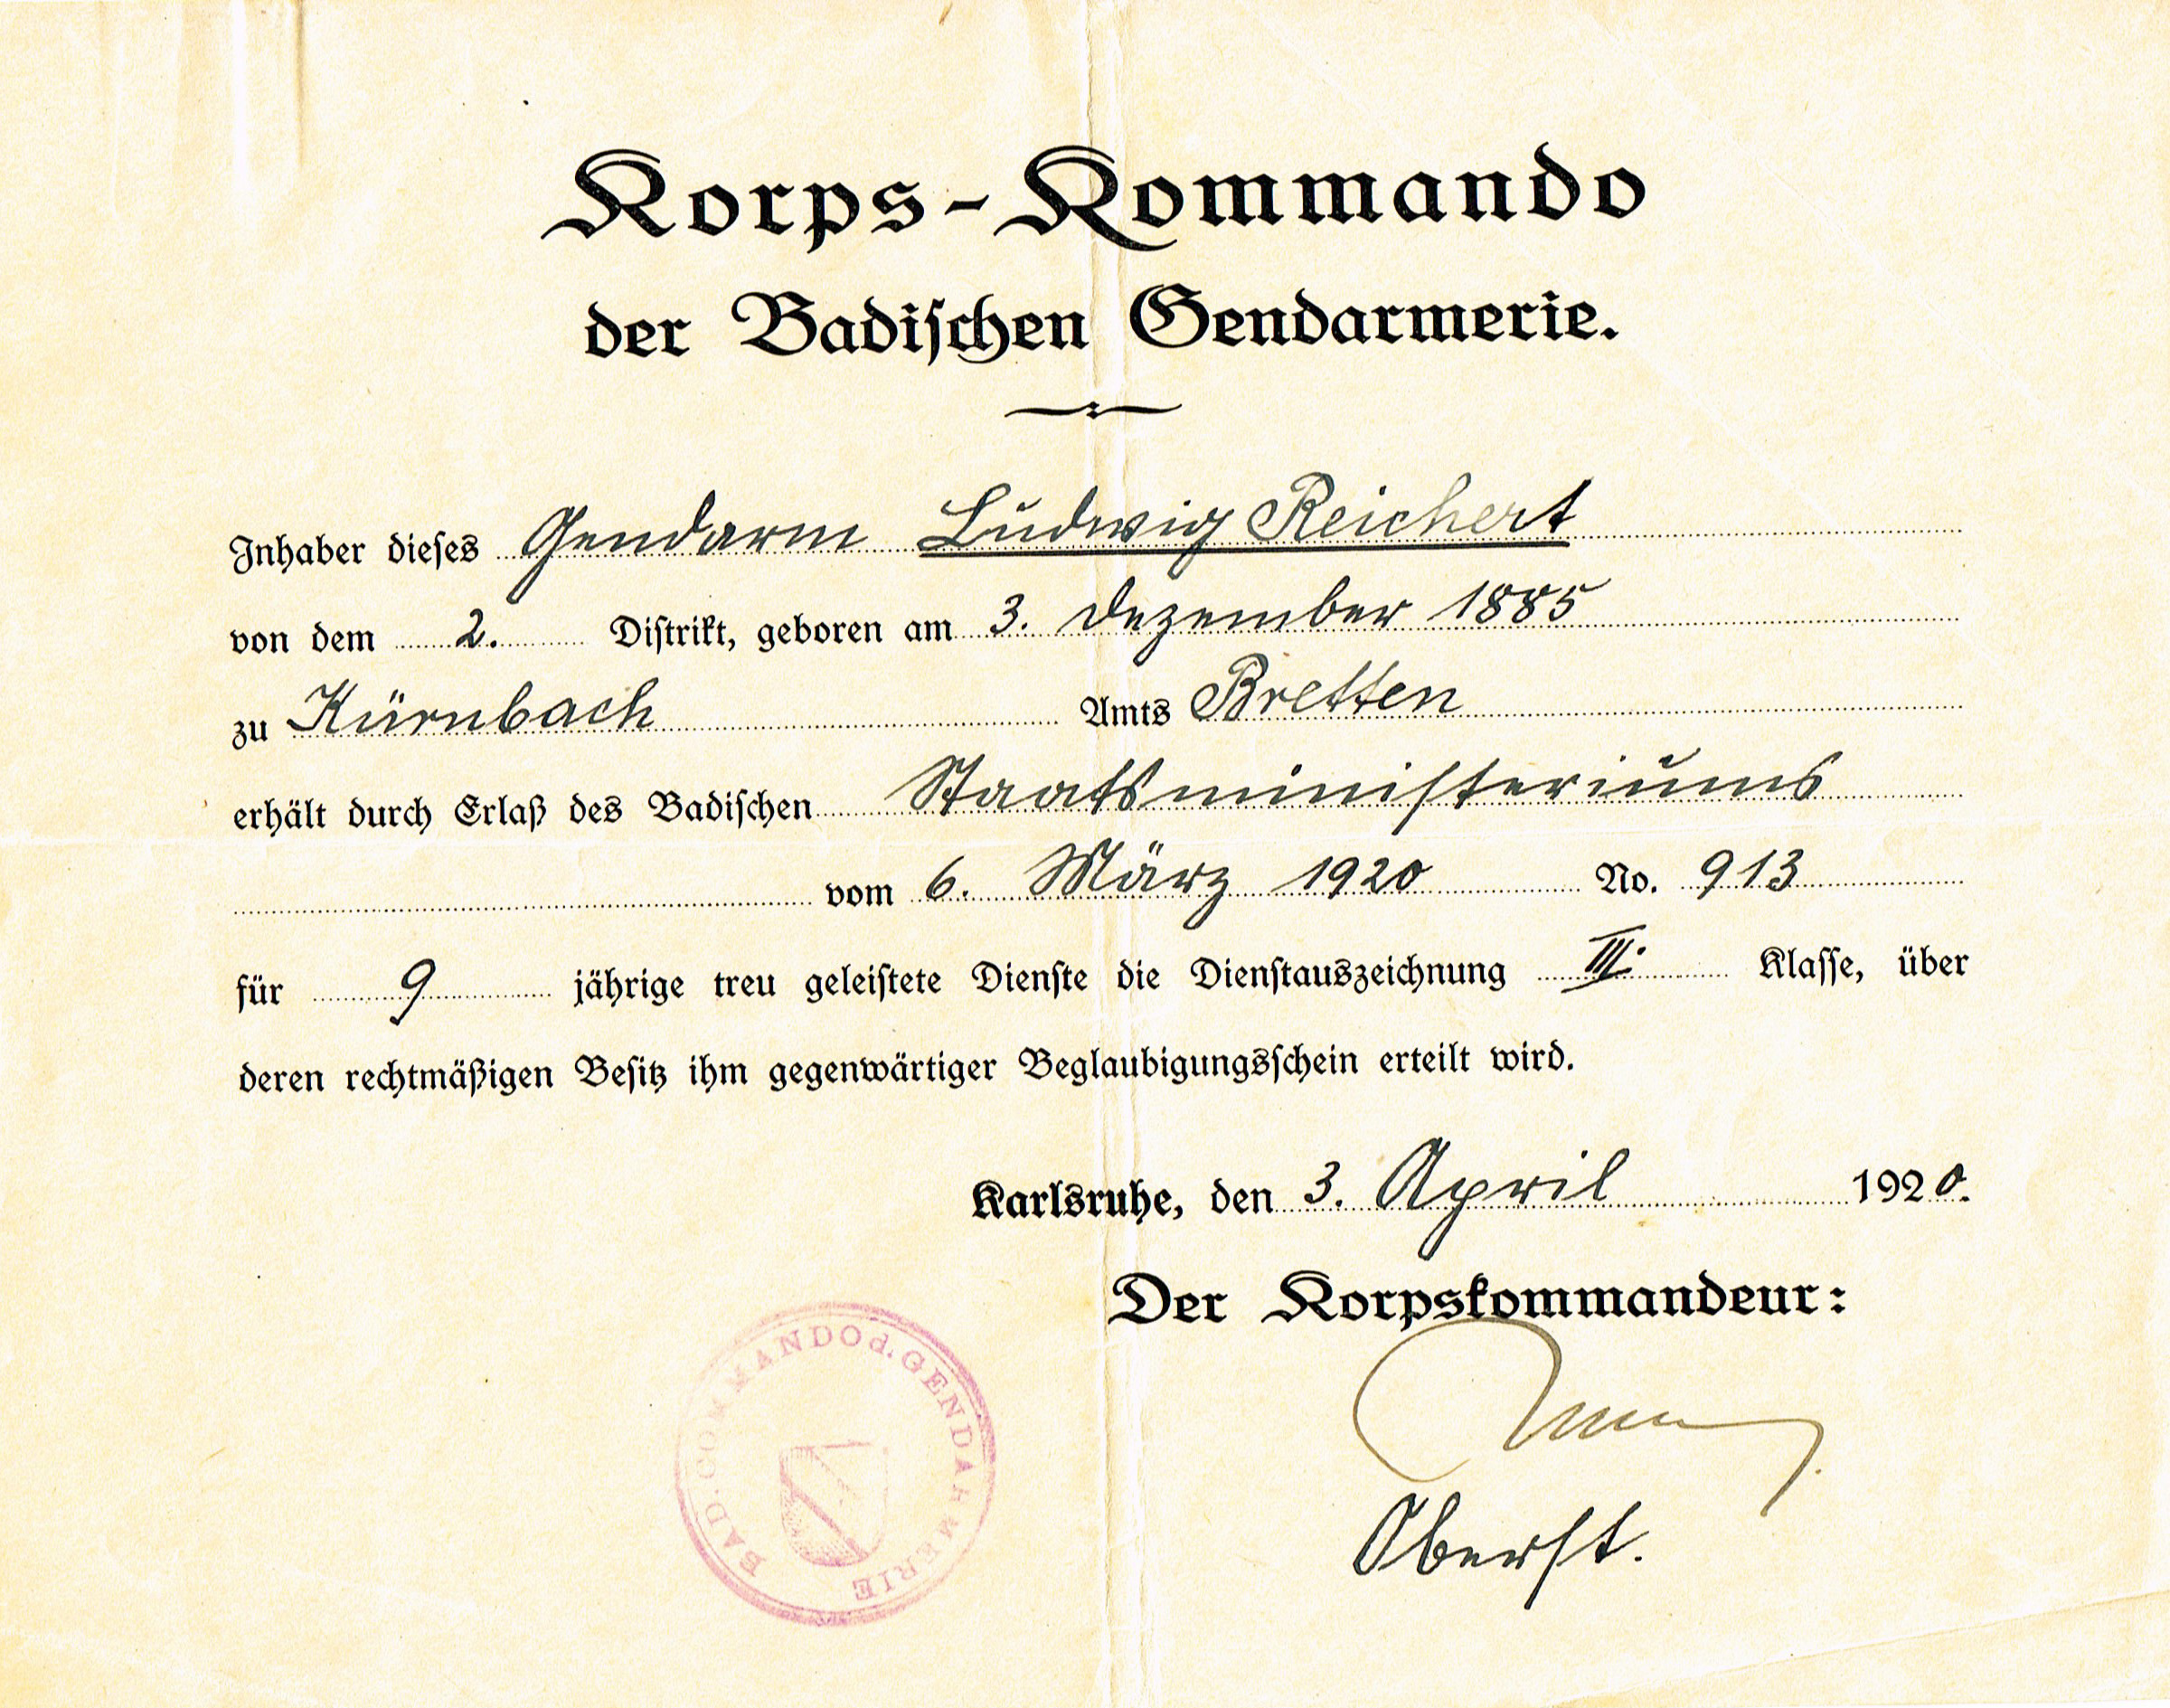 Korps-Kommando
der Badischen Gendarmerie.
Inhaber dieses Gendarm Ludwig Reichert
von dem 2. Distrikt, geboren am 3. Dezember 1885
zu Kürnbach Amts Bretten
erhält durch Erlaß des Badischen Staatsministeriums
vom 6. März 1920 No. 913
für 9 jährige treu geleistete Dienste die Dienstauszeichnung III. Klasse, über
deren rechtmäßigen Besitz ihm gegenwärtiger Beglaubigungsschein erteilt wird.
Karlsruhe, den 3. April 1920.
Der Korpskommandeur:
Oberst.
BAD. COMMANDO d. GENDARMERIE